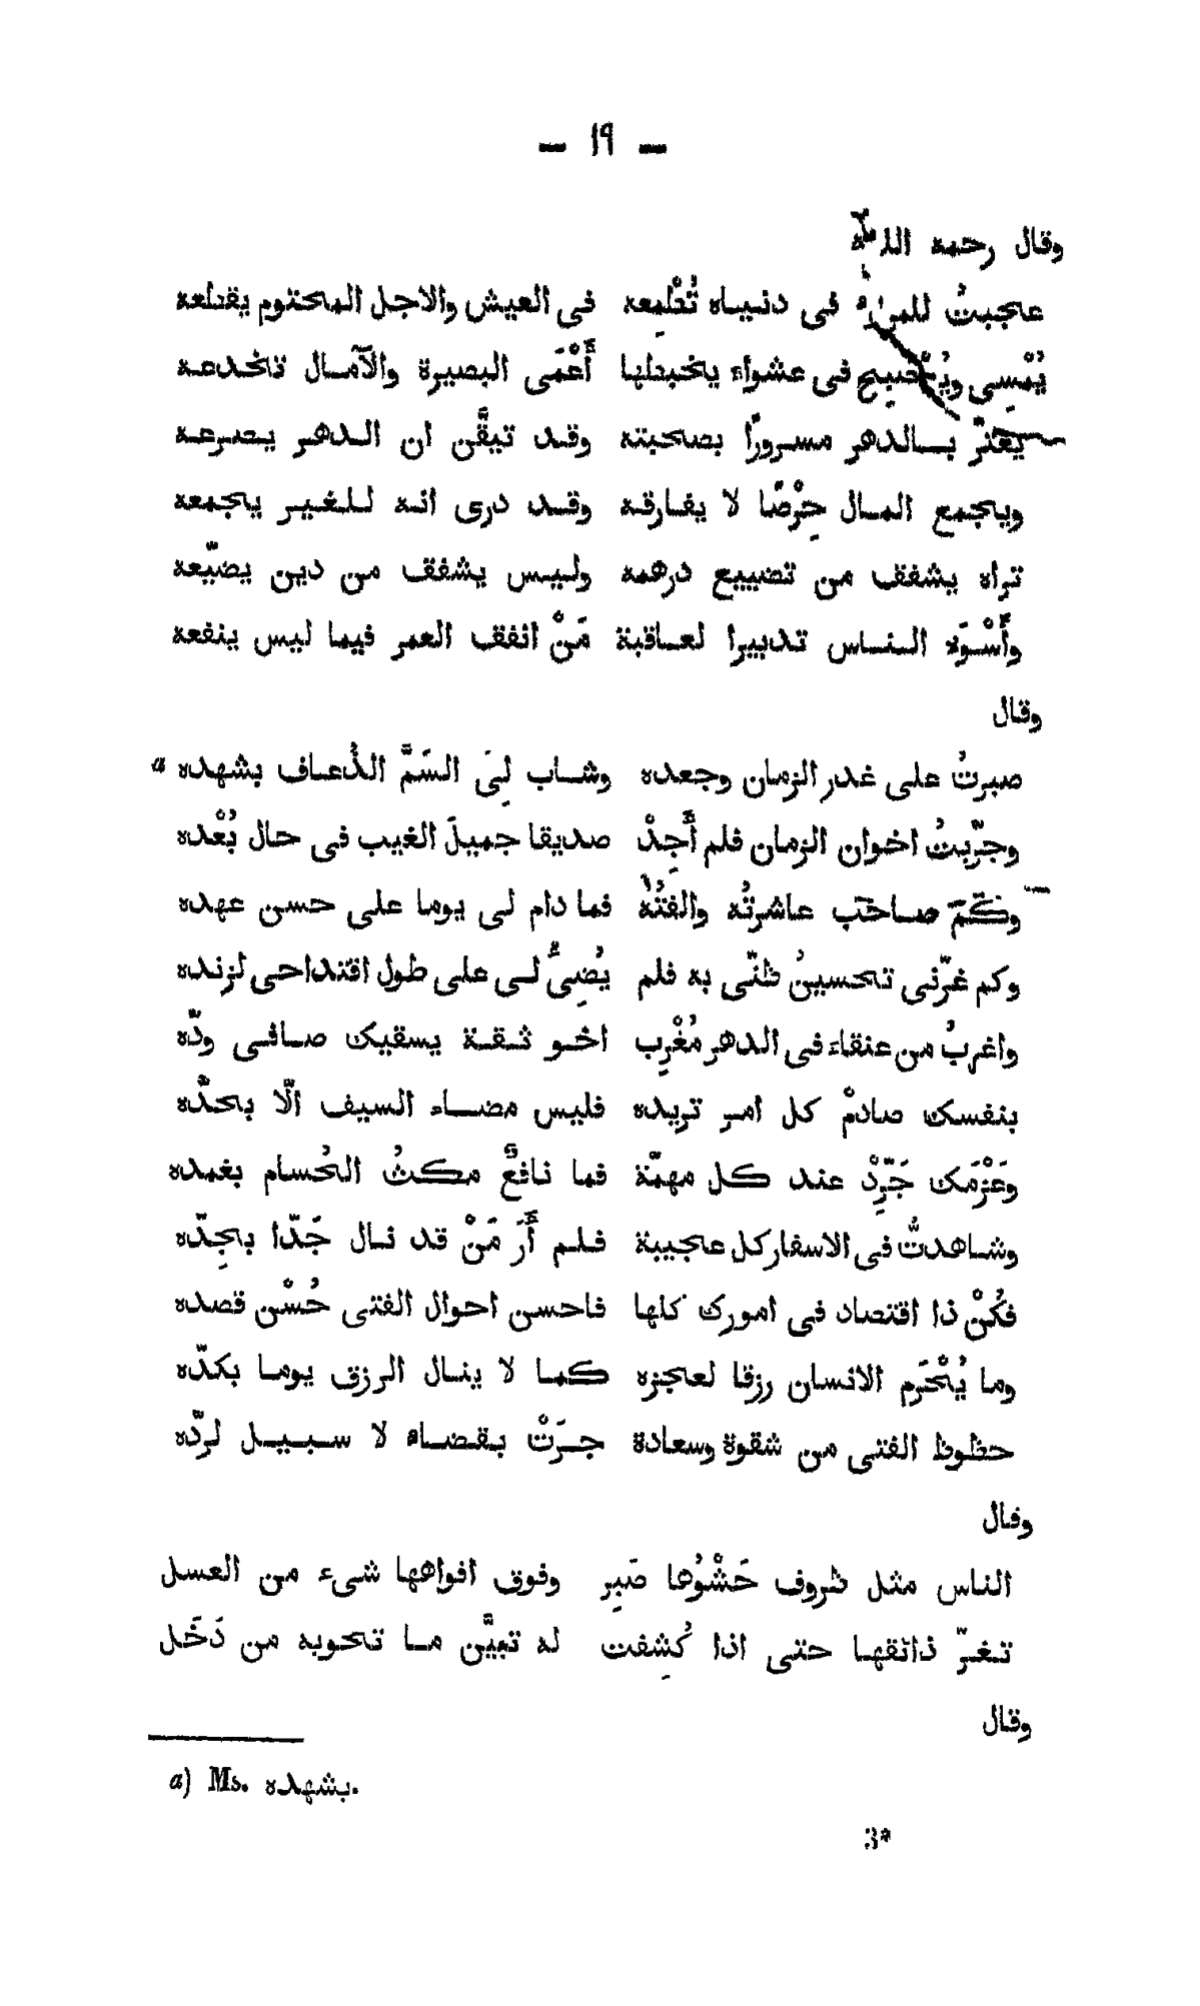 — ١٩ —
وقال رحمه الله
عجبتُ للمرء فى دنياه تُطْمِعه فى العيش والاجل المحتوم يقطعه
يُمْسِى ويُصْبِح فى عشواء يخبطها أَعْمَى البصيرة والآمال تخدعه
يغترّ بالدهر مسرورًا بصحبته وقد تيقَّن ان الدهر يصرعه
ويجمع المال حِرْصًا لا يفارقه وقد درى انه للغير يجمعه
تراه يشفق من تضييع درهمه وليس يشفق من دين يضيّعه
وأَسْوَء الناس تدبيرا لعاقبة مَنْ انفق العمر فيما ليس ينفعه
وقال
صبرتُ على غدر الزمان وجعده وشاب لِىَ السَمَّ الذُعاف بشهده a
وجرّبتُ اخوان الزمان فلم أَجِدْ صديقا جميلَ الغيب فى حال بُعْده
وكَمْ صاحب عاشرتُه والفتُهُ فما دام لى يوما على حسن عهده
وكم غرّنى تحسينُ ظنّى به فلم يُضِىُّ لى على طول اقتداحى لزنده
واغربُ من عنقاء فى الدهر مُغْرِب اخو ثقة يسقيك صافى ودّه
بنفسك صادمْ كل امر تريده فليس مضاء السيف الّا بحدّه
وعَزْمَك جَرِّدْ عند كل مهمّة فما نافعٌ مكثُ الحُسام بغمده
وشاهدتُّ فى الاسفار كل عجيبة فلم أَرَ مَنْ قد نال جَدّا بجِدّه
فكُنْ ذا اقتصاد فى امورك كلها فاحسن احوال الفتى حُسْن قصده
وما يُحْرَم الانسان رزقا لعجزه كما لا ينال الرزق يوما بكدّه
حظوظ الفتى من شقوة وسعادة جرَتْ بقضاء لا سبيل لردّه
وقال
الناس مثل ظروف حَشْوُها صَبِر وفوق افواهها شىء من العسل
تغرّ ذائقها حتى اذا كُشِفت له تبيَّن ما تحويه من دَخَل
وقال
a) Ms. بشهده.
3*